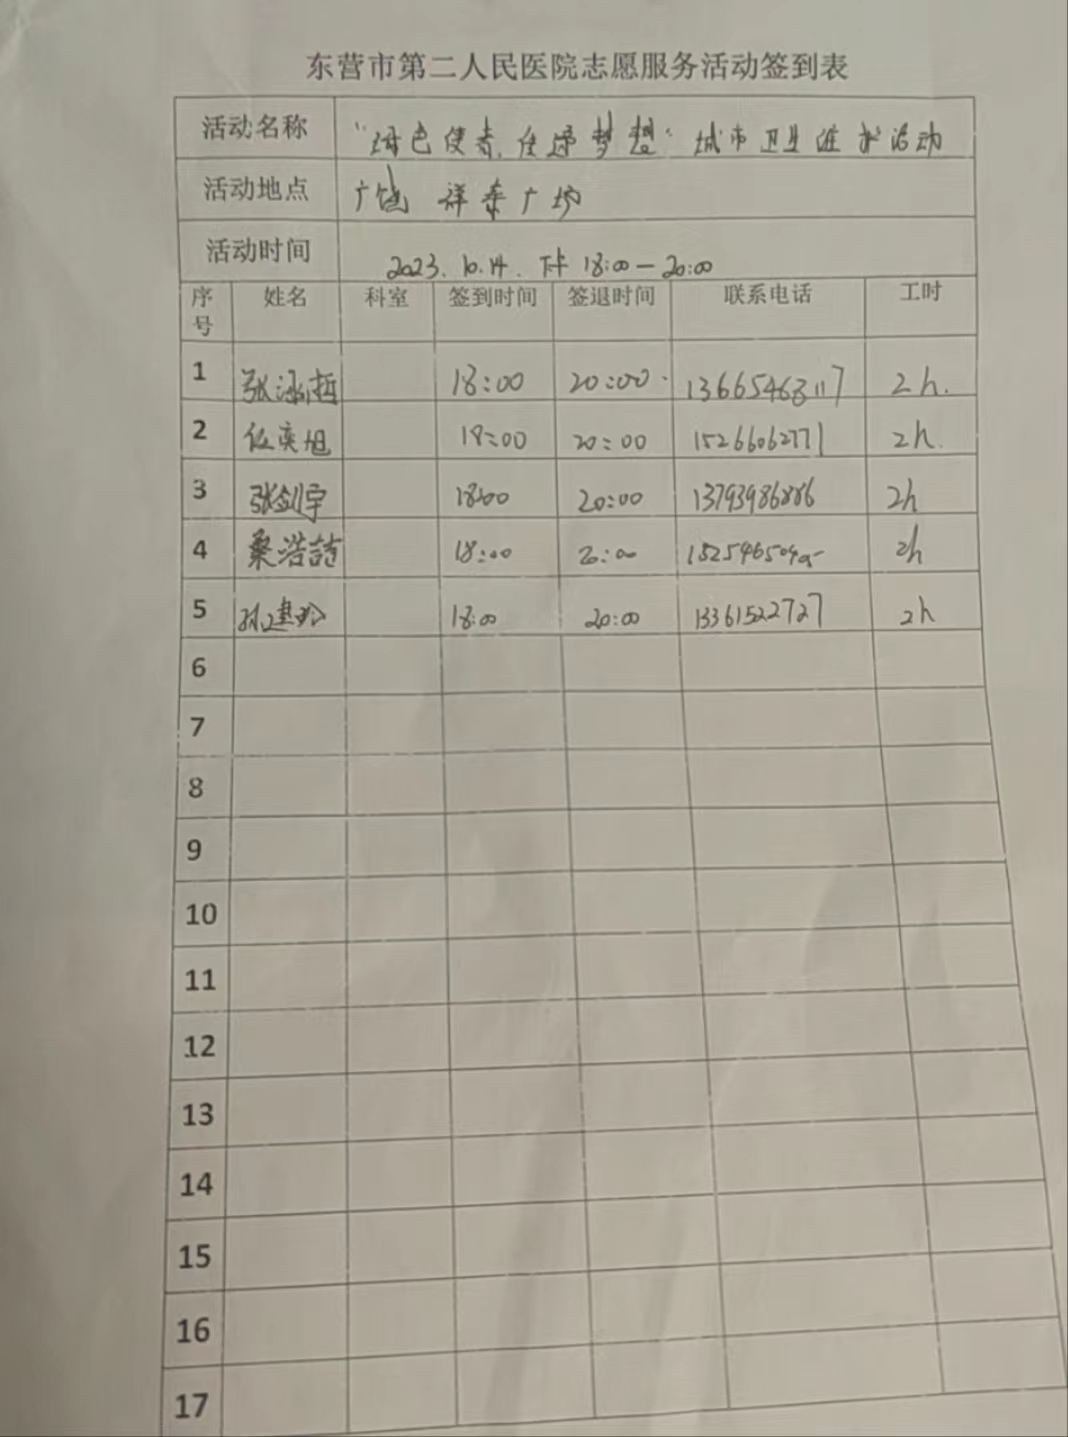 东营市第二人民医院志愿服务活动签到表
活动名称 "绿色使者,传递梦想"城市卫生维护活动
活动地点 广饶 祥泰广场
活动时间 2023.10.14. 下午 18:00—20:00
序号 姓名 科室 签到时间 签退时间 联系电话 工时
1 张泳哲 18:00 20:00 13665463117 2h.
2 伍奕旭 18:00 20:00 15266062771 2h.
3 张剑宇 18:00 20:00 13793986886 2h
4 桑浩喆 18:00 20:00 2h
5 18:00 20:00 13361522727 2h
6
7
8
9
10
11
12
13
14
15
16
17